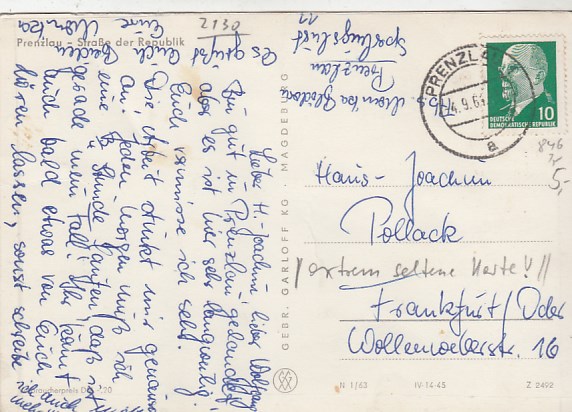 2130
Prenzlau - Straße der Republik
Lieber H.-Joachim, lieber Wolfgang!
Bin gut in Prenzlau gelandet,
aber es ist hier sehr langweilig.
Euch vermisse ich sehr.
Die Arbeit stinkt mir gemein
an. Jeden Morgen muß ich
eine Stunde laufen, das ist
gerade mein Fall! Ihr könnt
auch bald etwas von Euch
hören lassen, sonst schreibe
ich auch
Es grüßt Euch beiden
Eure Monika
Prenzlau
GEBR. GARLOFF KG. MAGDEBURG
PRENZLAU
4.9.6
a
DEUTSCHE
DEMOKRATISCHE REPUBLIK
10
846
5,-
Hans-Joachim
Pollack
extrem seltene Karte!!!
Frankfurt/Oder
Wollenweberstr. 16
N 1/63 IV-14-45 Z 2492